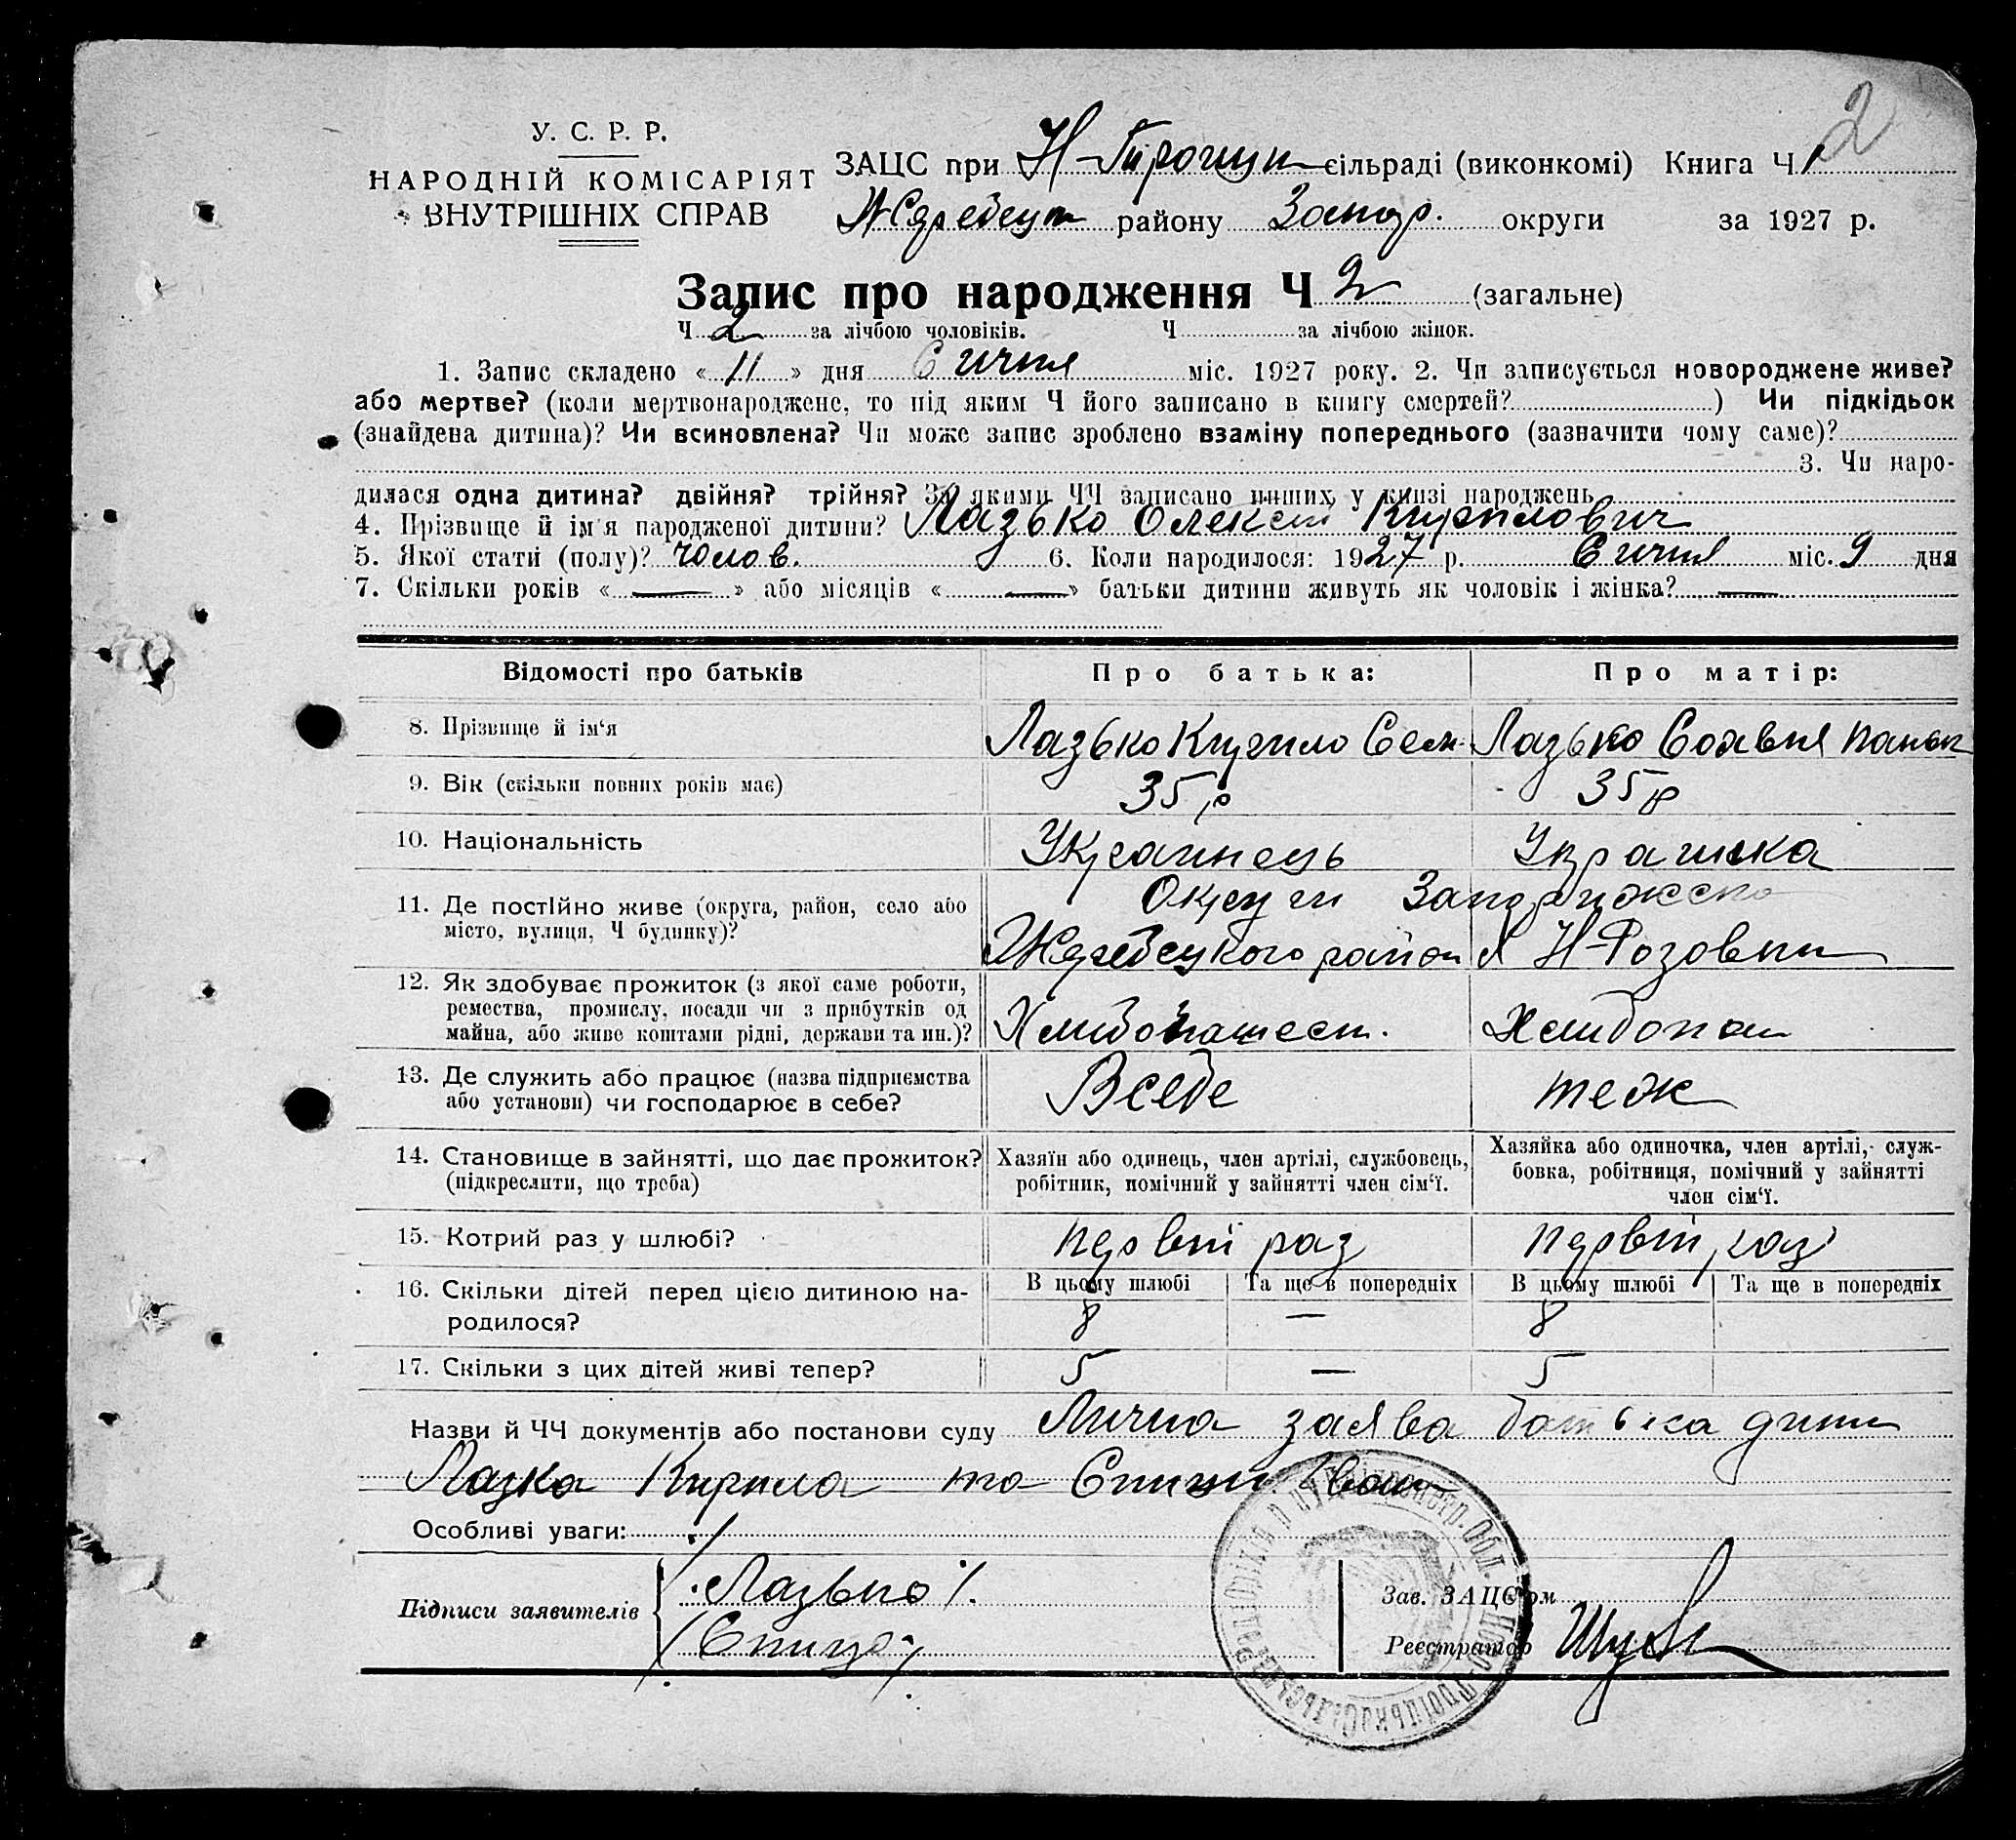 2
У. С. Р. Р.
НАРОДНІЙ КОМІСАРІЯТ
ВНУТРІШНІХ СПРАВ
ЗАЦС при Н-Троицк сільраді (виконкомі) Книга Ч 1
Жеребецьк району Запор. округи за 1927 р.
Запис про народження Ч 2 (загальне)
Ч 2 за лічбою чоловіків. Ч за лічбою жінок.
1. Запис складено « 11 » дня Січня міс. 1927 року. 2. Чи записується новороджене живе?
або мертве? (коли мертвонароджене, то під яким Ч його записано в книгу смертей? ) Чи підкідьок
(знайдена дитина)? Чи всиновлена? Чи може запис зроблено взаміну попереднього (зазначити чому саме)?
3. Чи наро-
дилася одна дитина? двійня? трійня? За якими ЧЧ записано инших у книзі народжень
4. Прізвище й ім'я народженої дитини? Лазько Олексій Кирилович
5. Якої стати (полу)? Чолов. 6. Коли народилося: 1927 р. Січня міс. 9 дня
7. Скільки років « — » або місяців « — » батьки дитини живуть як чоловік і жінка? —
Відомості про батьків Про батька: Про матір:
8. Прізвище й ім'я Лазько Кирило Сем. Лазько Софія Паньк
9. Вік (скільки повних років має) 35 р 35 р
10. Національність Українець Українка
11. Де постійно живе (округа, район, село або Округи Запорижско
місто, вулиця, Ч будинку)? Жеребецкого район Н-Розовки
12. Як здобуває прожиток (з якої саме роботи,
ремества, промислу, посади чи з прибутків од
майна, або живе коштами рідні, держави та ин.)? Хлибопашест. Хлибопаш
13. Де служить або працює (назва підприємства
або установи) чи господарює в себе? Всебе теж
14. Становище в зайнятті, що дає прожиток? Хазяїн або одинець, член артілі, службовець, Хазяйка або одиночка, член артілі, служ-
(підкреслити, що треба) робітник, помічний у зайнятті член сім'ї. бовка, робітниця, помічний у зайнятті
член сім'ї.
15. Котрий раз у шлюбі? первій раз первій раз
16. Скільки дітей перед цією дитиною на- В цьому шлюбі Та ще в попередніх В цьому шлюбі Та ще в попередніх
родилося? 8 — 8
17. Скільки з цих дітей живі тепер? 5 — 5
Назви й ЧЧ документів або постанови суду Лична заява батька дити
Лазка Кирила та Спици Іван
Особливі уваги:
Підписи заявителів Лазько Зав. ЗАЦС'ом
Спица Реєстратор